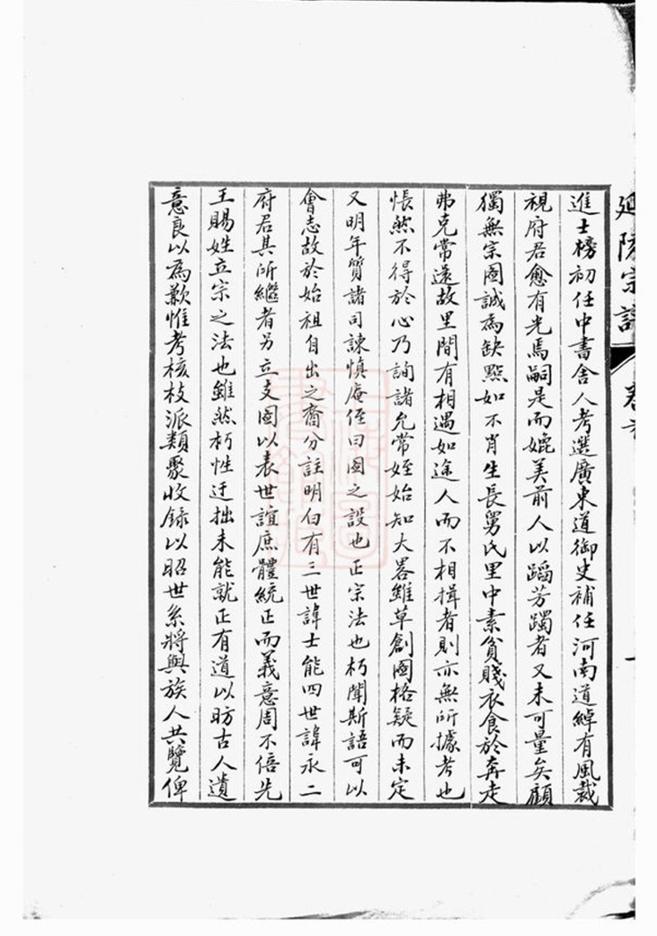 進士榜初任中書舍人考選廣東道御史補任河南道綽有風裁
視府君愈有光焉嗣是而媲美前人以蹈芳躅者又未可量矣顧
獨無宗圖誠為缺㸃如不肖生長舅氏里中素貧賤衣食於奔走
弗克常還故里間有相遇如途人而不相揖者則亦無所據考也
悵然不得於心乃詢諸允常姪始知大畧雖草創圖格疑而未定
又明年質諸司諫慎庵侄曰圖之設也正宗法也朽聞斯語可以
會志故於始祖自出之裔分註明白有三世諱士能四世諱永二
府君其所繼者另立支圖以表世誼庶體統正而義意周不倍先
王賜姓立宗之法也雖然朽性迂拙未能就正有道以昉古人遺
意良以為歉惟考核枝派類聚收録以昭世系將與族人共覽俾
延陵宗譜